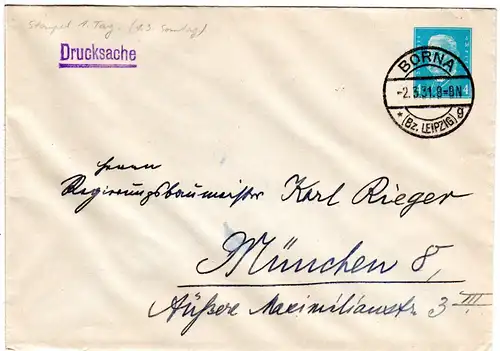 Stempel 1. Tag. (1.3. Sonntag)
Drucksache
BORNA
-2.3.31.9-9N
* (Bz. LEIPZIG) g
4
Herrn
Regierungsbaumeister Karl Rieger
München 8,
Äußere Maximilianstr. 3 III